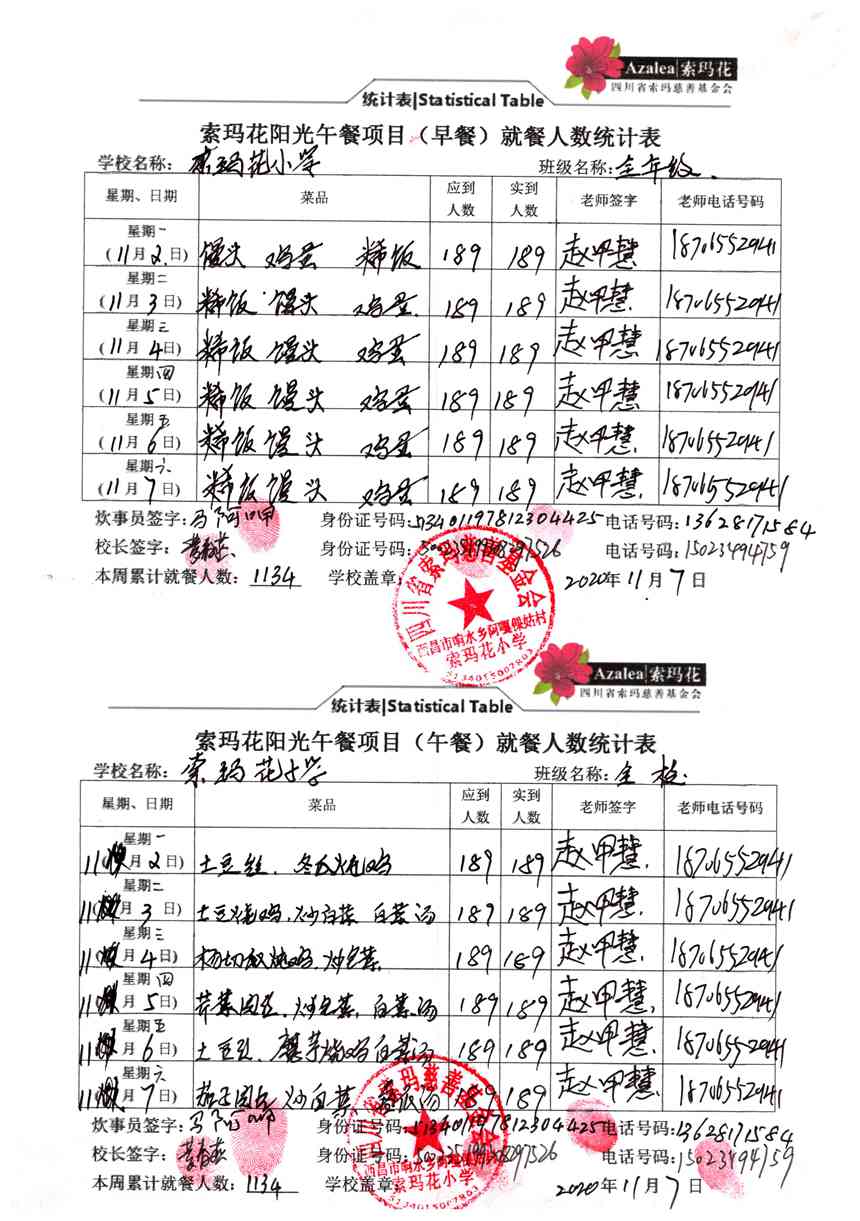 Azalea|索玛花
四川省索玛慈善基金会
统计表|Statistical Table
索玛花阳光午餐项目（早餐）就餐人数统计表
学校名称：索玛花小学 班级名称：全年级
星期、日期 菜品 应到人数 实到人数 老师签字 老师电话号码
星期一
(11月2日) 馒头 鸡蛋 稀饭 189 189 赵甲慧 18706552941
星期二
(11月3日) 稀饭 馒头 鸡蛋 189 189 赵甲慧 18706552941
星期三
(11月4日) 稀饭 馒头 鸡蛋 189 189 赵甲慧 18706552941
星期四
(11月5日) 稀饭 馒头 鸡蛋 189 189 赵甲慧 18706552941
星期五
(11月6日) 稀饭 馒头 鸡蛋 189 189 赵甲慧 18706552941
星期六
(11月7日) 稀饭 馒头 鸡蛋 189 189 赵甲慧 18706552941
炊事员签字：马阿 身份证号码：513401197812304425 电话号码：13628171584
校长签字： 身份证号码： 电话号码：15023494759
本周累计就餐人数：1134 学校盖章： 2020年11月7日
四川省索玛慈善基金会
西昌市响水乡阿嘎保姑村
索玛花小学
5134015007803
Azalea|索玛花
四川省索玛慈善基金会
统计表|Statistical Table
索玛花阳光午餐项目（午餐）就餐人数统计表
学校名称：索玛花小学 班级名称：全校
星期、日期 菜品 应到人数 实到人数 老师签字 老师电话号码
星期一
11月2日) 土豆丝. 冬瓜炖鸡 189 189 赵甲慧. 18706552941
星期二
11月3日) 土豆烧鸡.炒白菜 白菜汤 189 189 赵甲慧. 18706552941
星期三
11月4日) 189 189 赵甲慧. 18706552941
星期四
11月5日) 白菜汤 189 189 赵甲慧. 18706552941
星期五
11月6日) 土豆丝. 魔芋烧鸡 白菜汤 189 189 赵甲慧. 18706552941
星期六
11月7日) 茄子 炒白菜 189 189 赵甲慧. 18706552941
炊事员签字：马阿 身份证号码：513401197812304425 电话号码：13628171584
校长签字： 身份证号码： 电话号码：15023494759
本周累计就餐人数：1134 学校盖章： 2020年11月7日
四川省索玛慈善基金会
西昌市响水乡阿嘎保姑村
索玛花小学
5134015007803